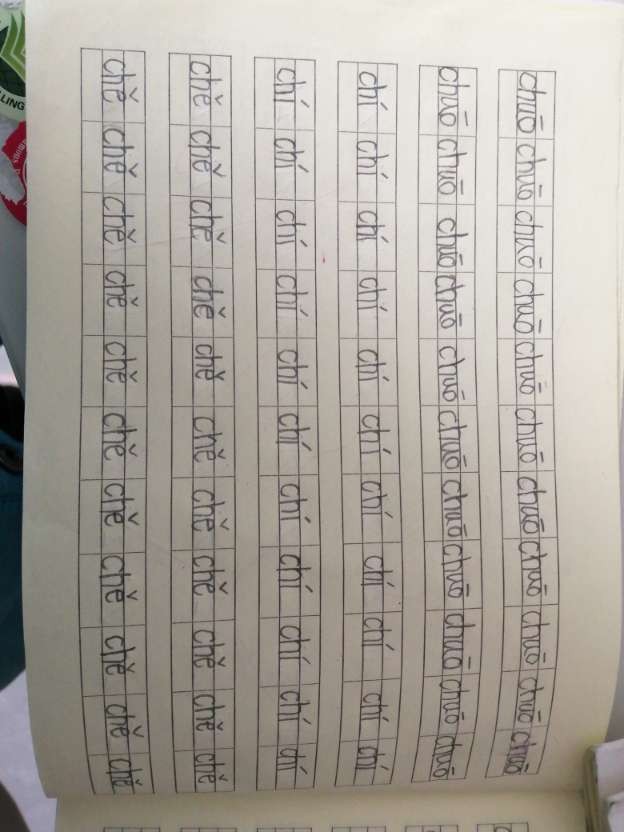 chuō chuō chuō chuō chuō chuō chuō chuō chuō chuō chuō
chuō chuō chuō chuō chuō chuō chuō chuō chuō chuō chuō
chí chí chí chí chí chí chí chí chí chí chí
chí chí chí chí chí chí chí chí chí chí chí
chě chě chě chě chě chě chě chě chě chě chě
chě chě chě chě chě chě chě chě chě chě chě
LING